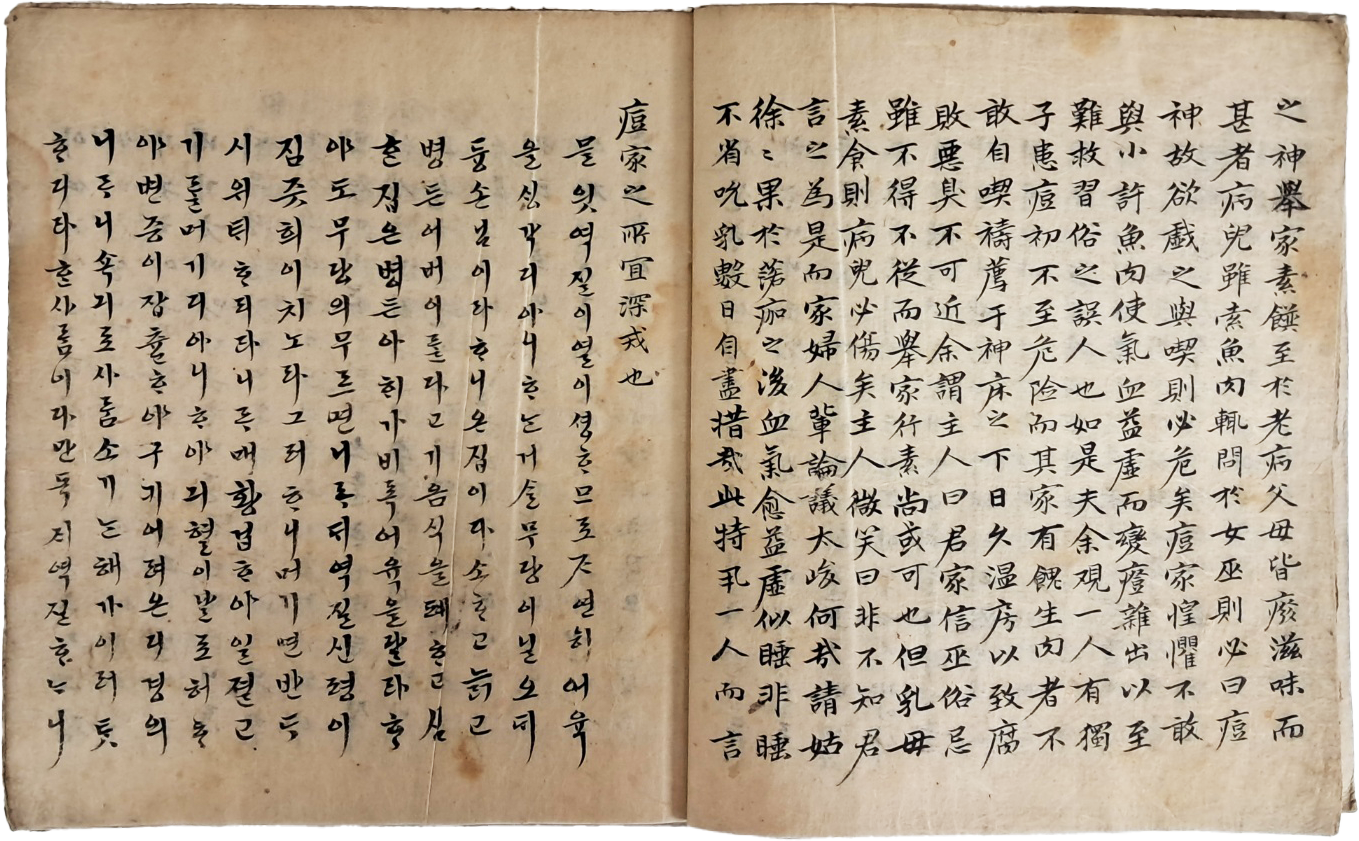 之神擧家素饌至於老病父母皆廢滋味而
甚者病兒雖索魚肉輒問於女巫則必曰痘
神故欲戱之與喫則必危矣痘家惶懼不敢
與小許魚肉使氣血益虛而變癥雜出以至
難救習俗之誤人也如是夫余觀一人有獨
子患痘初不至危险而其家有餽生肉者不
敢自喫禱薦于神床之下日久温房以致腐
敗惡臭不可近余謂主人曰君家信巫俗忌
雖不得不從而擧家行素尚或可也但乳母
素食則病兒必傷矣主人微笑曰非不知君
言之為是而家婦人輩論議太峻何㢤請姑
徐〻果於落痂之後血氣愈益虛似睡非睡
不省吮乳數日自盡惜㢤此特擧一人而言
痘家之所宜深戒也
믈읫역질이열이셩ᄒᆞ므로ᄌᆞ연히어육
을ᄉᆡᆼ각디아니ᄒᆞᄂᆞ거ᄉᆞᆯ무당이닐오ᄃᆡ
듕손님이라ᄒᆞ니온집이다소ᄒᆞ고늙고
병든어버이ᄅᆞᆯ다고기음식을폐ᄒᆞ고심
ᄒᆞᆫ집은병든아ᄒᆡ가비록어육을달라ᄒᆞ
야도무당의무르면니ᄅᆞᄃᆡ역질신령이
짐즛희이치노라그러ᄒᆞ니머기면반ᄃᆞ
시위ᄐᆡᄒᆞ리라니ᄅᆞ매황겁ᄒᆞ야일졀고
기ᄅᆞᆯ머기디아니ᄒᆞ야긔혈이발로허ᄒᆞ
야변증이잡츌ᄒᆞ야구키어려온디경의
니ᄅᆞ니쇽긔로사ᄅᆞᆷ소기ᄂᆞᆫ해가이러ᄐᆺ
ᄒᆞ디라ᄒᆞᆫ사ᄅᆞᆷ이다만독ᄌᆡ역질ᄒᆞᄂᆞ니